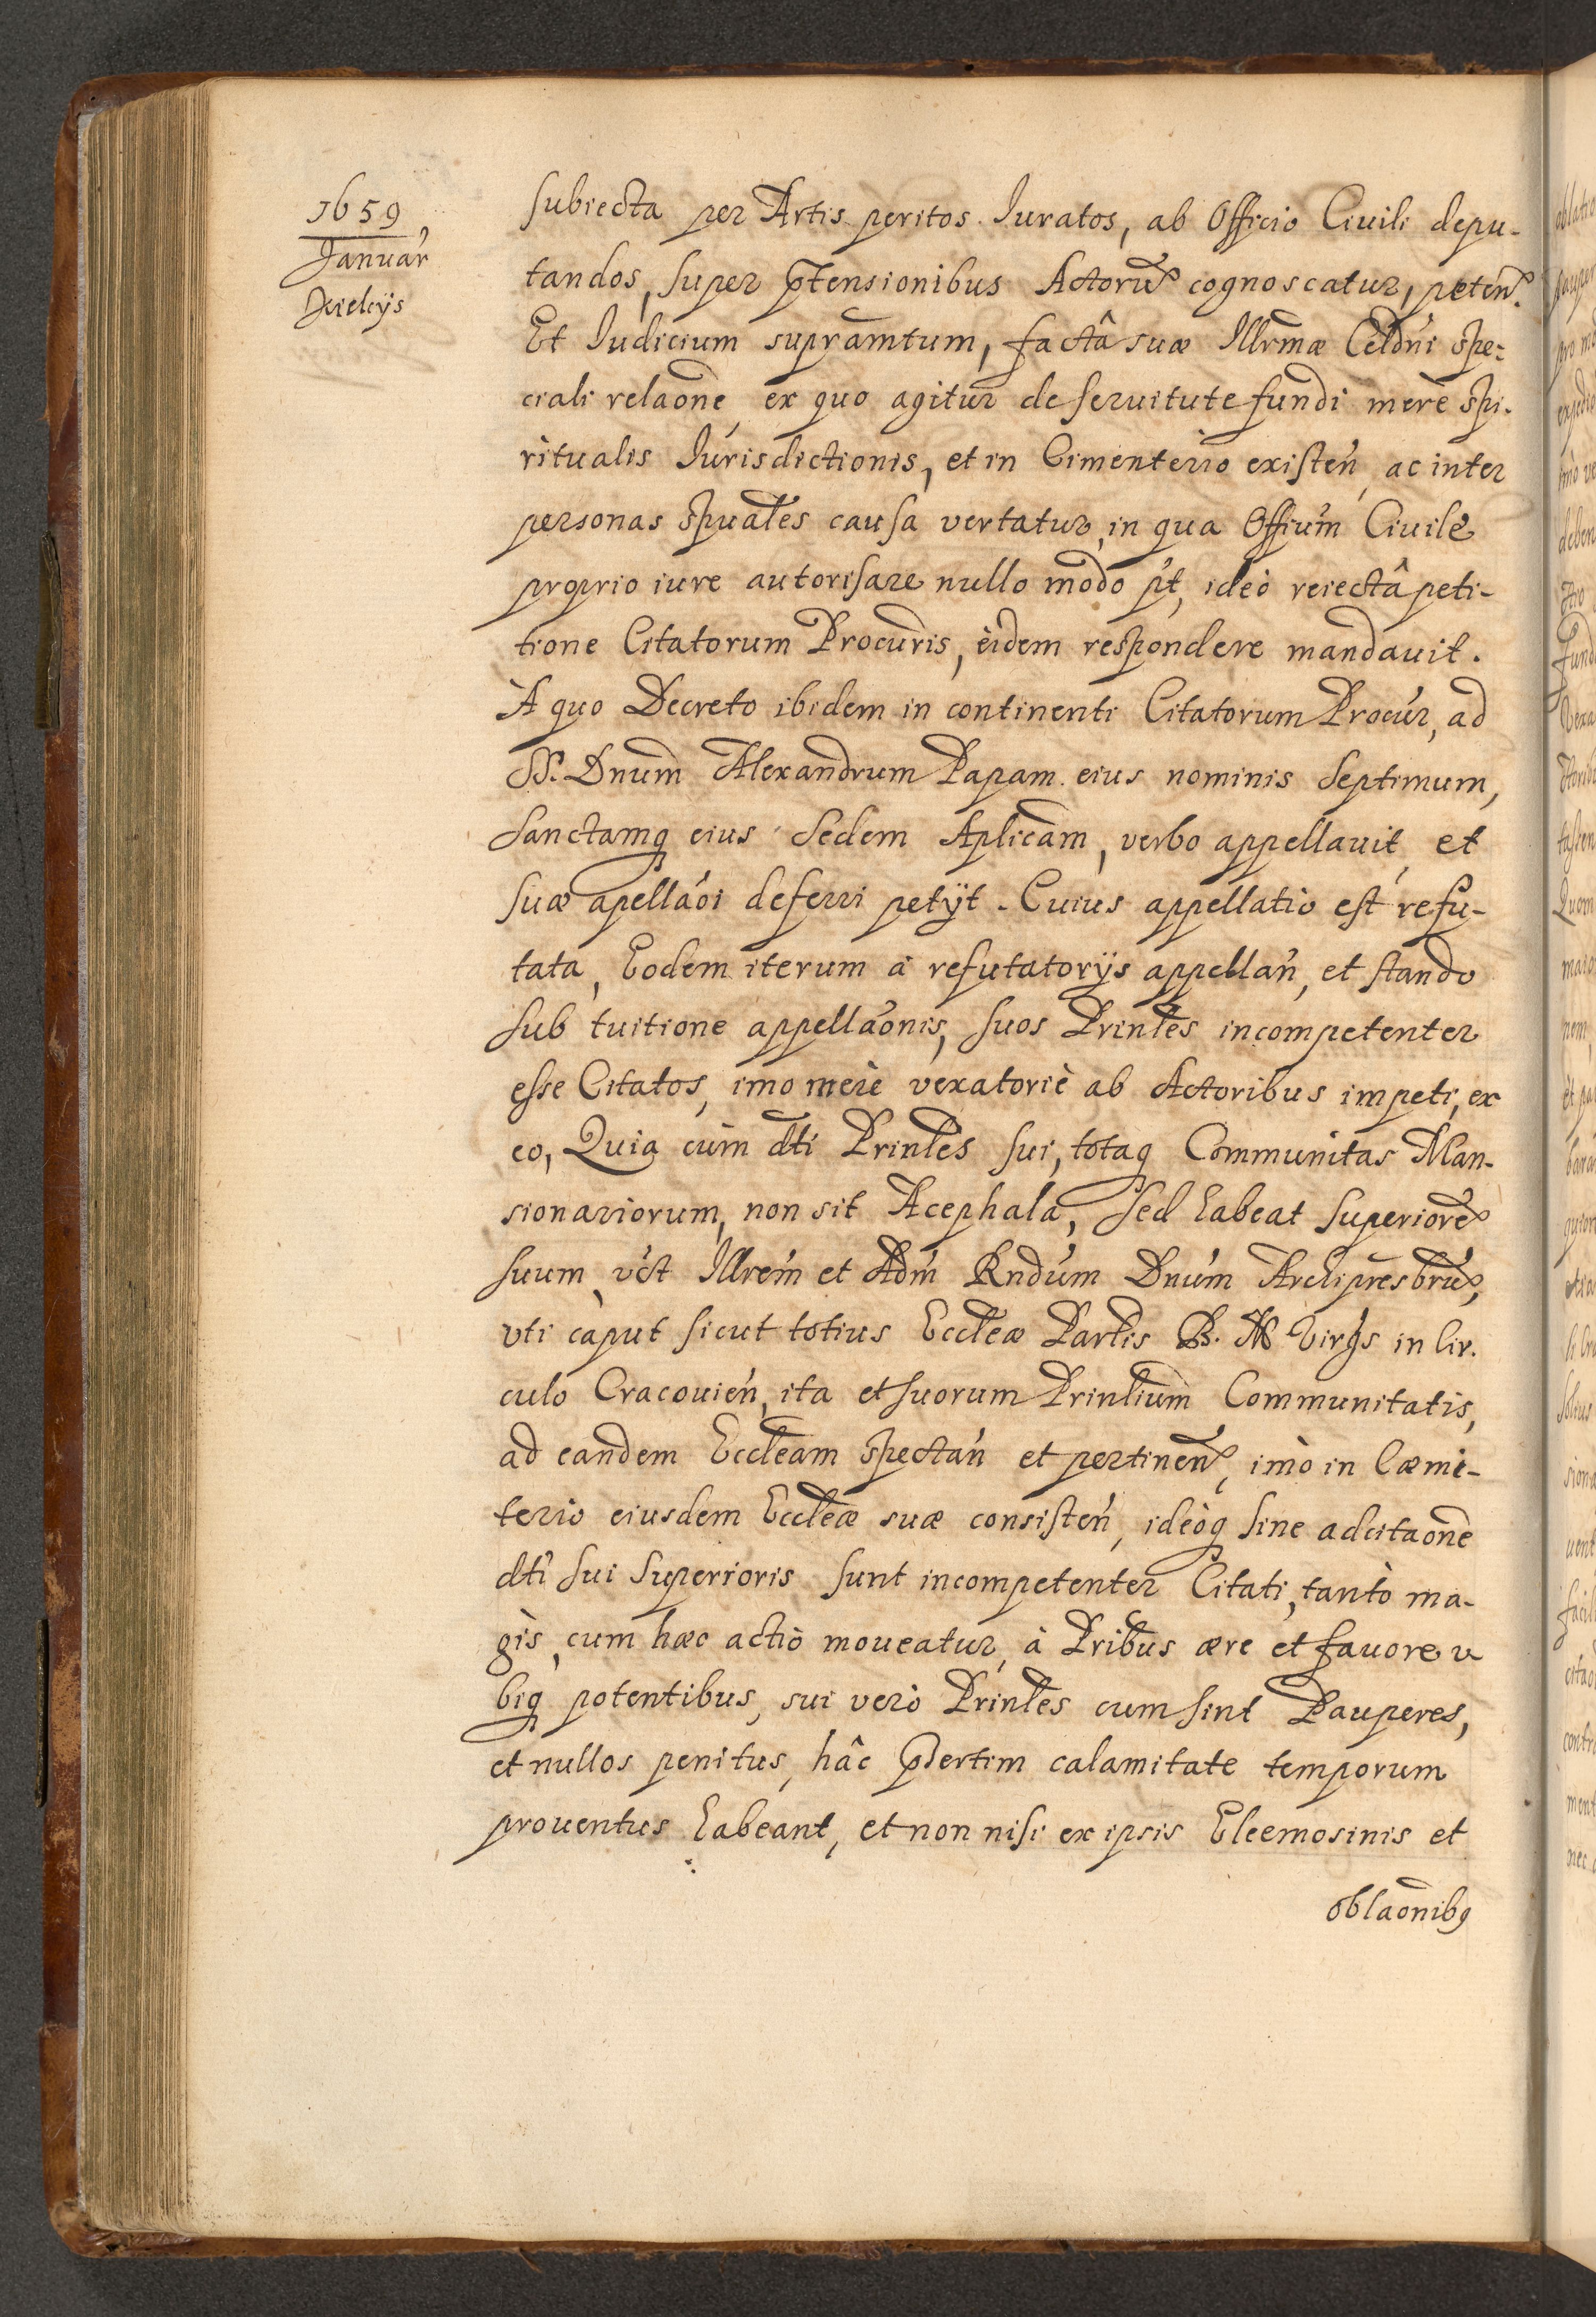 1659
Januar̃
Kielcijs
subiecta per Artis peritos Iuratos, ab Officio Ciuili depu-
tandos, super p̄tensionibus Actorū cognoscatur, peteñ.
Et Iudicium supramtum, factâ suæ Illrmæ Celdni spe-
ciali relaone, ex quo agitur de seruitute fundi merè spi-
ritualis Iurisdictionis, et in Cimenterio existeñ, ac inter
personas spuales causa vertatur, in qua Offium Ciuile
proprio iure autorisare nullo modo pt, ideò reiectâ peti-
tione Citatorum Procuris, eidem respondere mandauit.
A quo Decreto ibidem in continenti Citatorum Procur, ad
SS. Dnum Alexandrum Papam eius nominis Septimum,
Sanctamq eius Sedem Aplicam, verbo appellauit, et
suæ apellaoi deferri petijt. Cuius appellatio est refu-
tata, Eodem iterum à refutatorijs appellañ, et stando
sub tuitione appellaonis, suos Prinles incompetenter
esse Citatos, imo merè vexatoriè ab Actoribus impeti, ex
eo, Quia cùm dti Prinles sui, totaq Communitas Man-
sionariorum, non sit Acephala, sed habeat Superiorē
suum, vct Illrem et Adm Rndum Dnum Archipresbrū,
vti caput sicut totius Eccleæ Parlis B. M Virgs in Cir-
culo Cracouien, ita et suorum Prinlium Communitatis,
ad eandem Eccleam spectañ et pertineñ, imò in Cæmi-
terio eiusdem Eccleæ suæ consisteñ, ideòq sine adcitaone
dti sui Superioris sunt incompetenter Citati, tantò ma-
gis, cum hæc actio moueatur, à Pribus ære et fauore v-
biq potentibus, sui verò Prinles cum sint Pauperes,
et nullos penitus, hâc p̄sertim calamitate temporum
prouentus habeant, et non nisi ex ipsis Eleemosinis et
oblaonibq